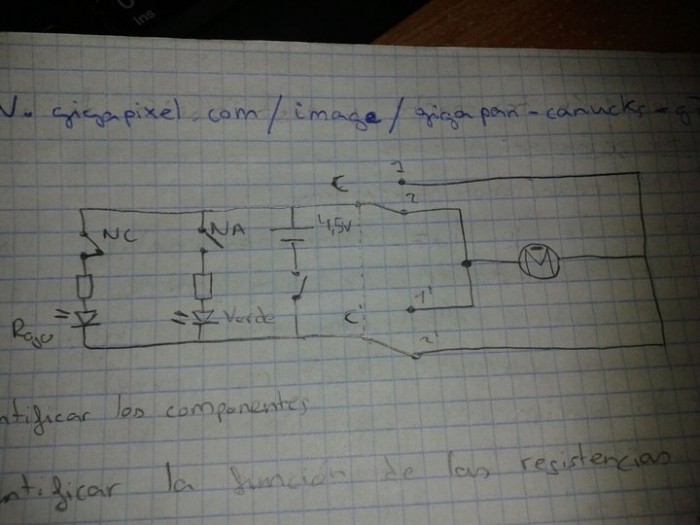 Ins
gigapixel.com/image/gigapan-canucks-g
C 1
2
NC NA 4,5V
M
1'
Rojo Verde C' 2'
ntificar los componentes
ntificar la función de las resistencias